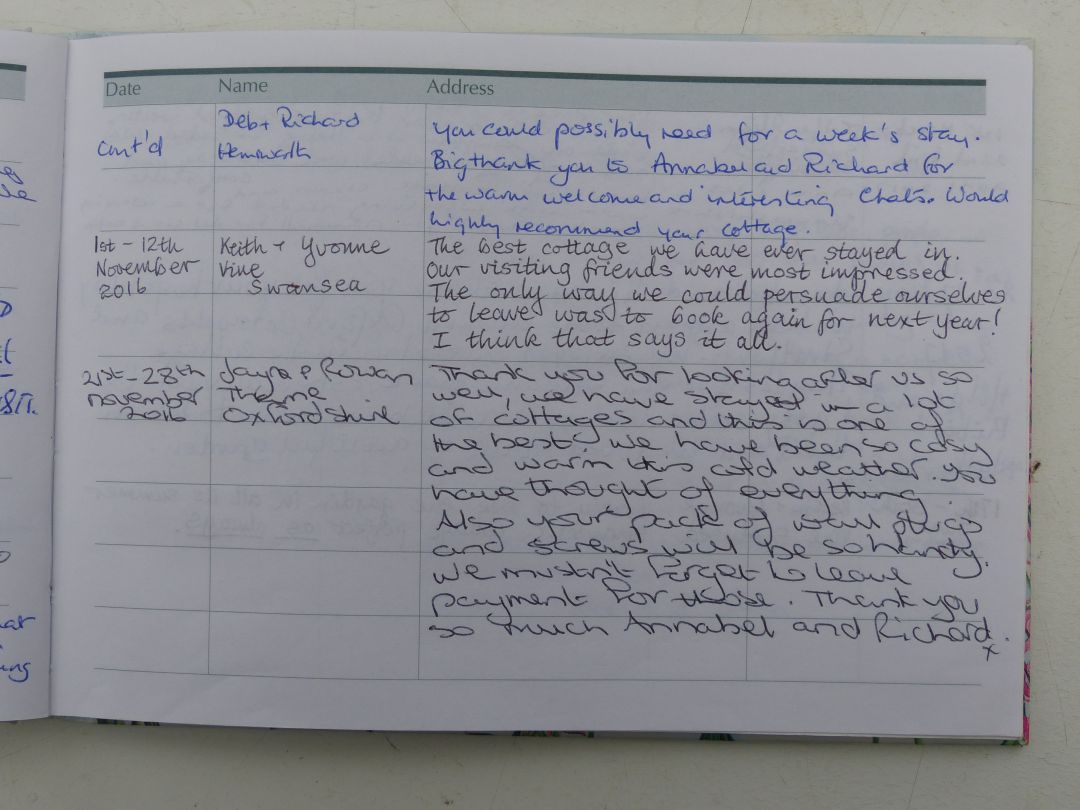 Date Name Address
cont'd Deb + Richard Hemsworth you could possibly need for a week's stay.
Big thank you to Annabel and Richard for
the warm welcome and interesting chats. Would
highly recommend your cottage.
1st - 12th November 2016 Keith + Yvonne Vine Swansea The best cottage we have ever stayed in.
Our visiting friends were most impressed.
The only way we could persuade ourselves
to leave was to book again for next year!
I think that says it all.
21st - 28th november 2016 Rowan Thame Oxfordshire Thank you for looking after us so
well, we have stayed in a lot
of cottages and this is one of
the best! we have been so cosy
and warm this cold weather. you
have thought of everything.
Also your pack of wall plugs
and screws will be so handy.
we mustn't forget to leave
payment for those. Thank you
so much Annabel and Richard.
x